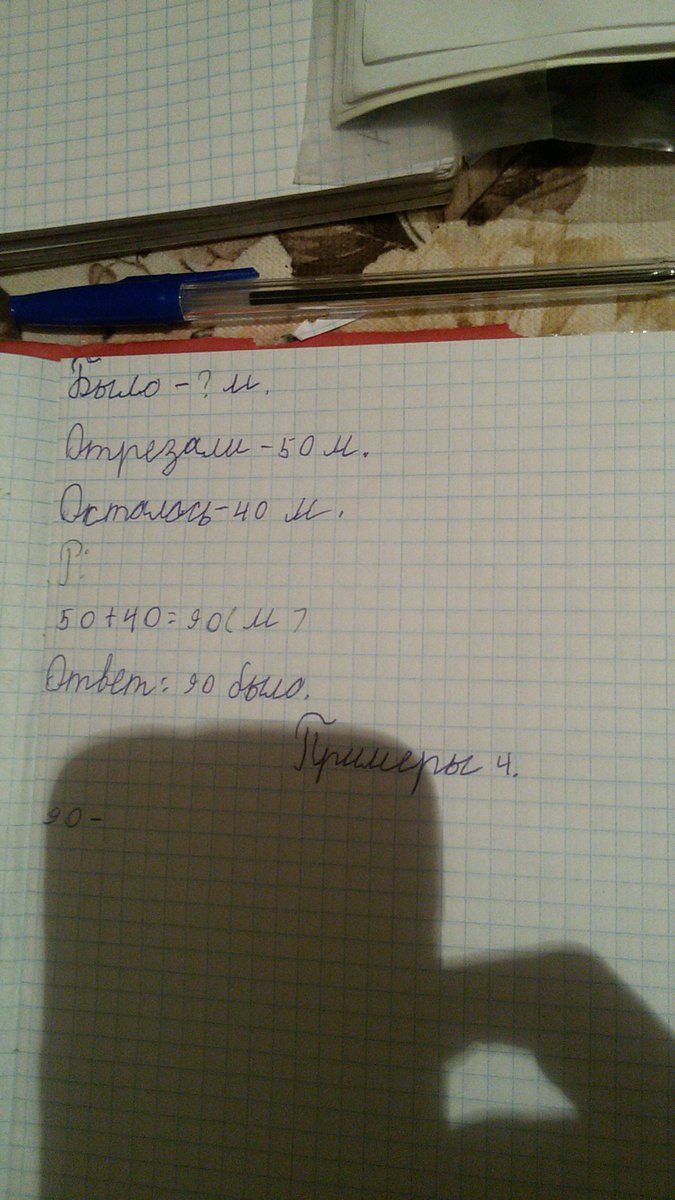 Было - ? м.
Отрезали - 50 м.
Осталось - 40 м.
Р:
50+40=90(м)
Ответ: 90 было.
Примеры 4.
90 -